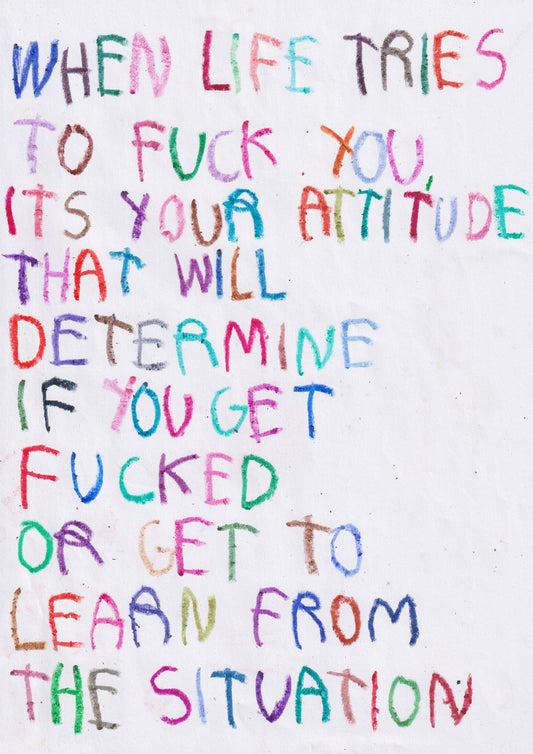 WHEN LIFE TRIES
TO FUCK YOU,
ITS YOUR ATTITUDE
THAT WILL
DETERMINE
IF YOU GET
FUCKED
OR GET TO
LEARN FROM
THE SITUATION